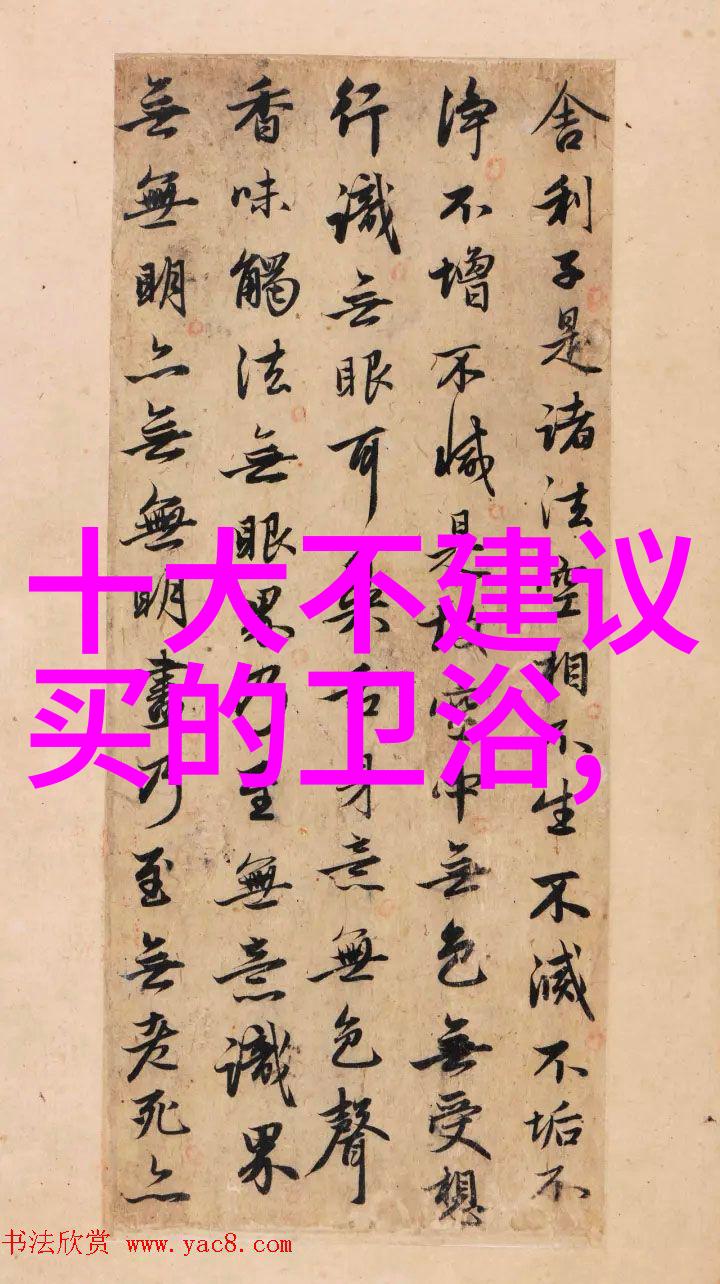 舎利子是诸法空相不生不滅不垢不
净不增不減是故空中無色無受想
行識無眼耳鼻舌身意無色聲
香味觸法無眼界乃至無意識界
無無明亦無無明盡乃至無老死亦
十大不建议
买的卫浴,
书法欣赏 www.yac8.com